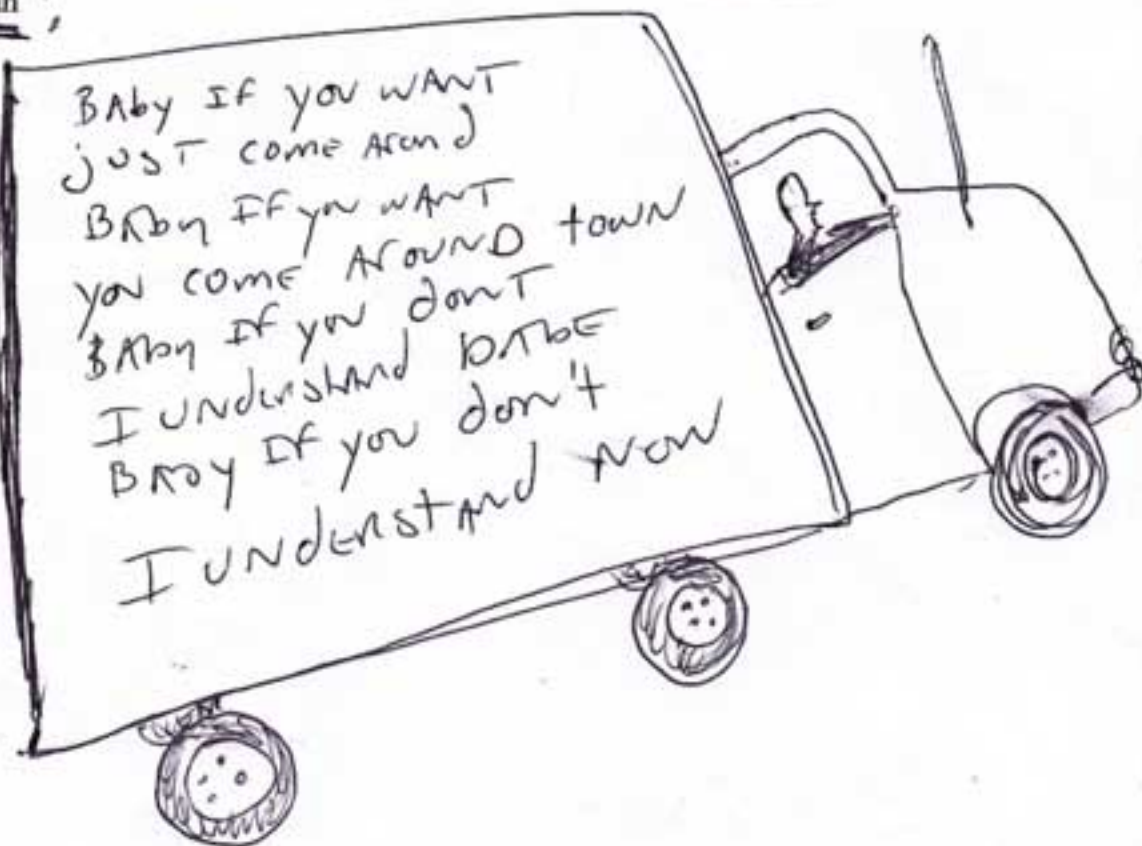 BAby If you wANT
jusT come Around
BAby If you wANT
you come ArounD town
BAby If you donT
I understand BABE
BABy If you don't
I understAnd Now